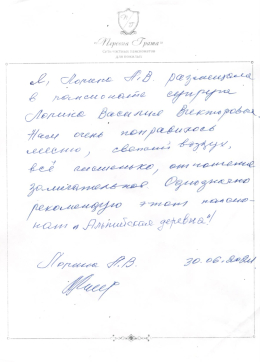 Я, Лорина Л.В размещала
в пансионате супруга
Лорина Василия Викторовича
Нам очень понравилось
место, свежий воздух,
всё чистенько, отношение
замечательное Однозначно
рекомендую этот пансио-
нат и "Альпийская деревня"!
Лорина Л.В. 30.06.2021